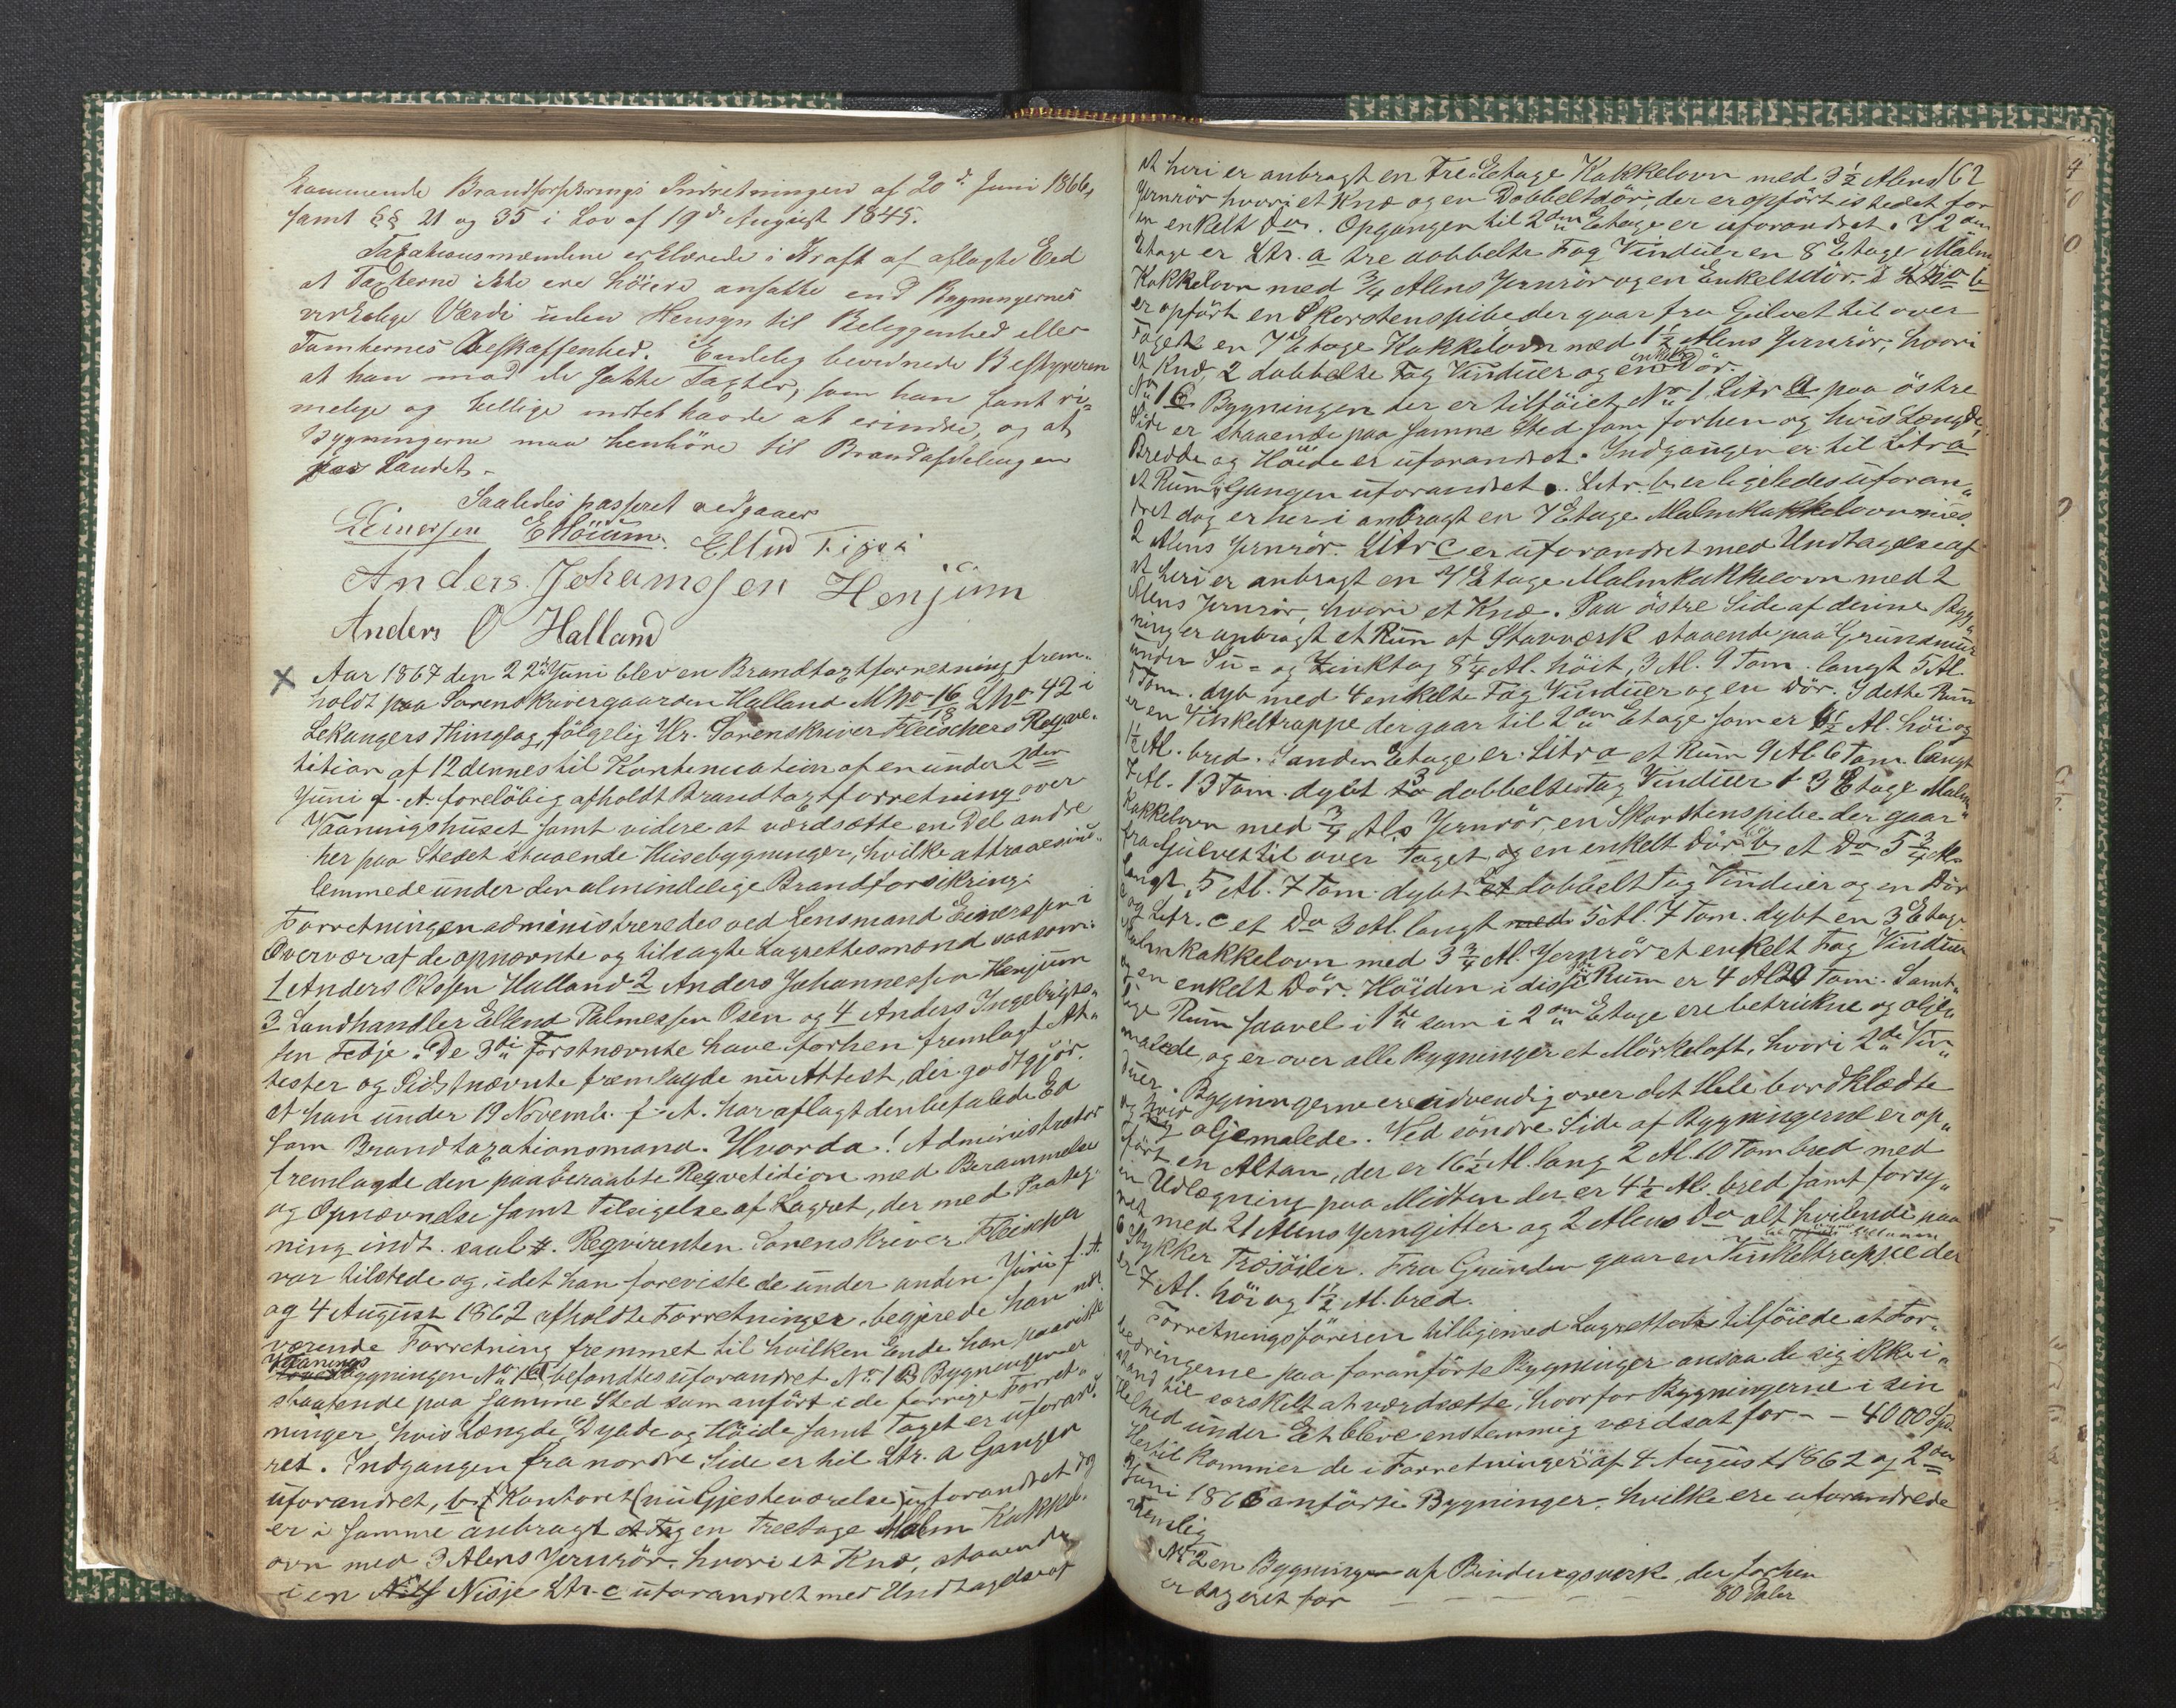 kommende Brandforsikrings Indretningen af 20de Juni 1866,
samt §§ 21 og 35 i Lov af 19de August 1845.
Taxationsmændene erklærede i Kraft af aflagte Eed
at Taxterne ikke ere höiere ansatte end Bygningernes
virkelige Værdi uden Hensyn til Beliggenhed eller
Tomternes Beskaffenhed. Endelig bevidnede Bestyreren
at han mod de satte Taxter, som han fant ri-
melige og billige intet havde at erindre, og at
Bygningerne maa henhöre til Brandafdelingen
paa Landet.
Saaledes passeret vedgaaes
Einersen EHöium. Ellend
Anders Johannesen Henjum
Anders O Halland
X Aar 1867 den 22de Juni blev en Brandtaxtforretning frem-
holdt paa Sorenskrivergaarden Halland MNo 16 LNo 42 i
18
Lekangers Thinglag, fölgelig Hr. Sorenskriver Fleischers Reqvi-
sition af 12 dennes til Kontinuation af en under 2den
Juni f. A. foreløbig afholdt Brandtaxtforretning over
Vaaningshuset samt videre at værdsætte en Del andre
her paa Stedet staaende Husebygninger, hvilke attraaes ind-
lemmede under den almindelige Brandforsikring.
Forretningen administreredes ved Lensmand Einersen i
Overvær af de opnævnte og tilsagte Lagrettesmænd saasom:
1 Anders Olsen Halland 2 Anders Johannessen Henjum
3 Landhandler Ellend Palmessen Osen og 4 Anders Ingebrigts-
sen Fedje. De 3de Förstnævnte have forhen fremlagt At-
tester og Sidstnævnte fremlagde nu Attest, der godtgjör.
at han under 19 Novemb. f. A. har aflagt den befalede Ed
som Brandtaxationsmand. Hvorda! Administrator
fremlagde den paaberaabte Reqvisition med Berammelse
og Opnævnelse samt Tilsigelse af Lagret, der med Paateg-
ning indt. saal. Reqvirenten Sorenskriver Fleischer
var tilstede og, idet han foreviste de under anden Juni f. A.
og 4 August 1862 afholdte Forretninger, begjerede han nu-
værende Forretning fremmet til hvilken Ende han paaviste
Vaanings
Bygningen No 1 A befandtes uforandret No 1 B Bygningen er
staaende paa samme Sted som anført i de forrige Forret-
ninger, hvis Længde, Dybde og Höide samt Taget er uforand-
ret. Indgangen fra nordre Side er til Ltr. a Gangen
uforandret, b (Kontoret (nu Gjesteværelse) uforandret dog
er i samme anbragt en treetage Malm Kakkel-
ovn med 3 Alens Jernrör, hvori et Knæ, staaende
i en Nisje Ltr. c uforandret med Undtagelse af
162
at heri er anbragt en treEtage Kakkelovn med 3½ Alens
Jernrör hvori et Knæ og en Dobbeltdör, der er opfört istedet for
en enkelt Do. Opgangen til 2den Etage er uforandret. I 2den
Etage er Ltr. a tre dobbelte Fag Vinduer en 8 Etage Malm
Kakkelovn med ¾ Alens Jernrör og en Enkeltdör. I Ltr b
er opfört en Skorstenspibe der gaar fra Gulvet til over
Taget en 7 Etage Kakkelovn med 1½ Alens Jernrör, hvori
et Knæ, 2 dobbelte Fag Vinduer og en enkelt Dör.
No 1 C Bygningen der er tilföiet No 1 Litr A paa östre
Side er staaende paa samme Sted som forhen og hvis Længde,
Bredde og Höide er uforandret. Indgangen er til Litr a
et Rum, Gangen uforandret. Litr. b er ligeledes uforan-
dret dog er heri anbragt en 7 Etage Malmkakkelovn med
2 Alens Jernrör. Litr c er uforandret med Undtagelse af
at heri er anbragt en 7 Etage Malmkakkelovn med 2
Alens Jernrör, hvori et Knæ. Paa östre Side af denne Byg-
ning er anbragt et Rum af Stavværk staaende paa Grundmur
under Su- og Zinktag 8¼ Al. höit, 3 Al. 9 Tom. langt 5 Al
5 Tom. dyb med 4 enkelte Fag Vinduer og en Dör. I dette Rum
er en Vinkeltrappe der gaar til 2den Etage som er ½ Al. höi og
1½ Al. bred. I anden Etage er Litr a et Rum 9 Al 6 Tom. langt
7 Al. 13 Tom. dybt 3 dobbelte Fag Vinduer 1 3 Etage Malm
Kakkelovn med ¾ Als Jernrör, en Skorstenspibe der gaar
fra Gulvet til over Taget og en enkelt Dör b et Do 5¾ Al.
langt, 5 Al. 7 Tom. dybt et dobbelt Fag Vinduer og en Dör
og Litr. c et Do 3 Al. langt med 5 Al. 7 Tom. dybt en 3 Etage
Malmkakkelovn med 3¾ Al. Jernrör et enkelt Fag Vinduer
og en enkelt Dör. Höiden i disse Rum er 4 Al 20 Tom. Samt-
lige Rum saavel i 1ste som i 2den Etage ere betrukne og olje-
malede, og er over alle Bygninger et Mörkeloft, hvori 2de Vin-
duer. Bygningerne ere udvendig over det Hele bordklædte
og hvid oljemalede. Ved söndre Side af Bygningerne er op-
fört en Altan, der er 16½ Al. lang 2 Al. 10 Tom bred med
en Udlægning paa Midten der er 4½ Al. bred samt forsy-
net med 21 Alens Jerngitter og 2 Alens Do alt hvilende paa
6 Stykker Træsöiler. Fra Grunden gaar en Vinkeltrappe der
er 7 Al. höi og 1½ Al. bred.
Forretningsföreren tilligemed Lagrettet tilföiede at For-
bedringerne paa foranförte Bygninger ansaa de sig ikke i-
stand til særskilt at værdsætte, hvorfor Bygningerne i sin
Helhed under Et bleve enstemmig værdsat for - - 4000 Spd.
Hertil kommer de i Forretninger af 4 August 1862 og 2den
Juni 1866 anförte Bygninger, hvilke ere uforandrede
nemlig
No 2 en Bygning af Bindingsværk, der forhen
er taxeret for — — — — — 80 Daler